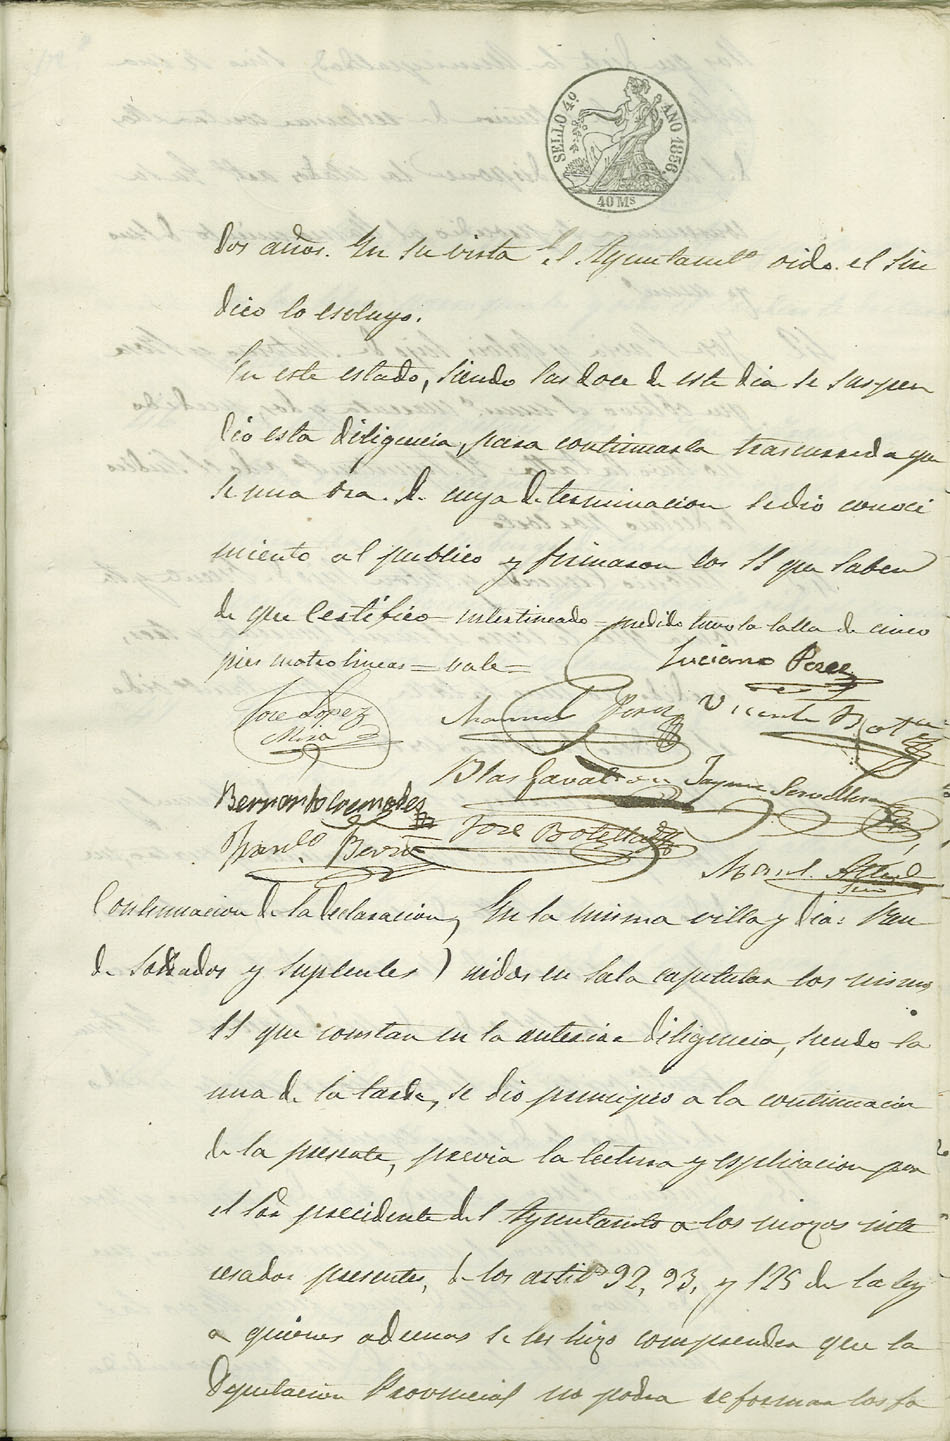 SELLO 4º AÑO 1856.
40 Ms
dos años. En su vista el Ayuntamto oido el Sin
dico lo escluyo.
En este estado, siendo las doce de este dia se suspen
dio esta diligencia, para continuarla trascurrida que
se una ora. de cuya determinacion se dio conoci
miento al publico y firmaron los SS que saben
de que Certifico = interlineado = medido tuvo la talla de cinco
pies cuatro lineas = vale =
Luciano Perez
Jose Lopez
Mira
Manuel Perez
Vicente Botella
Blas
Jayme
Bernardo Cremades
Franco.
Jose Botella
Manl.
Continuacion de la declaracion
de Soldados y Suplentes )
En la misma villa y dia: Reu
nidos en Sala capitular los mismos
SS que constan en la anterior diligencia, siendo la
una de la tarde, se dio principio a la continuacion
de la presente, previa la lectura y esplicacion por
el Sor precidente del Ayuntamto a los mozos inte
resados presentes, de los artilos 92, 93, y 125 de la ley
a quienes ademas se les hizo comprender que la
Diputacion Provincial no podra reformar los fa